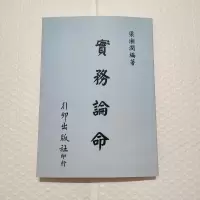 梁湘潤編著
實務論命
行卯出版社印行